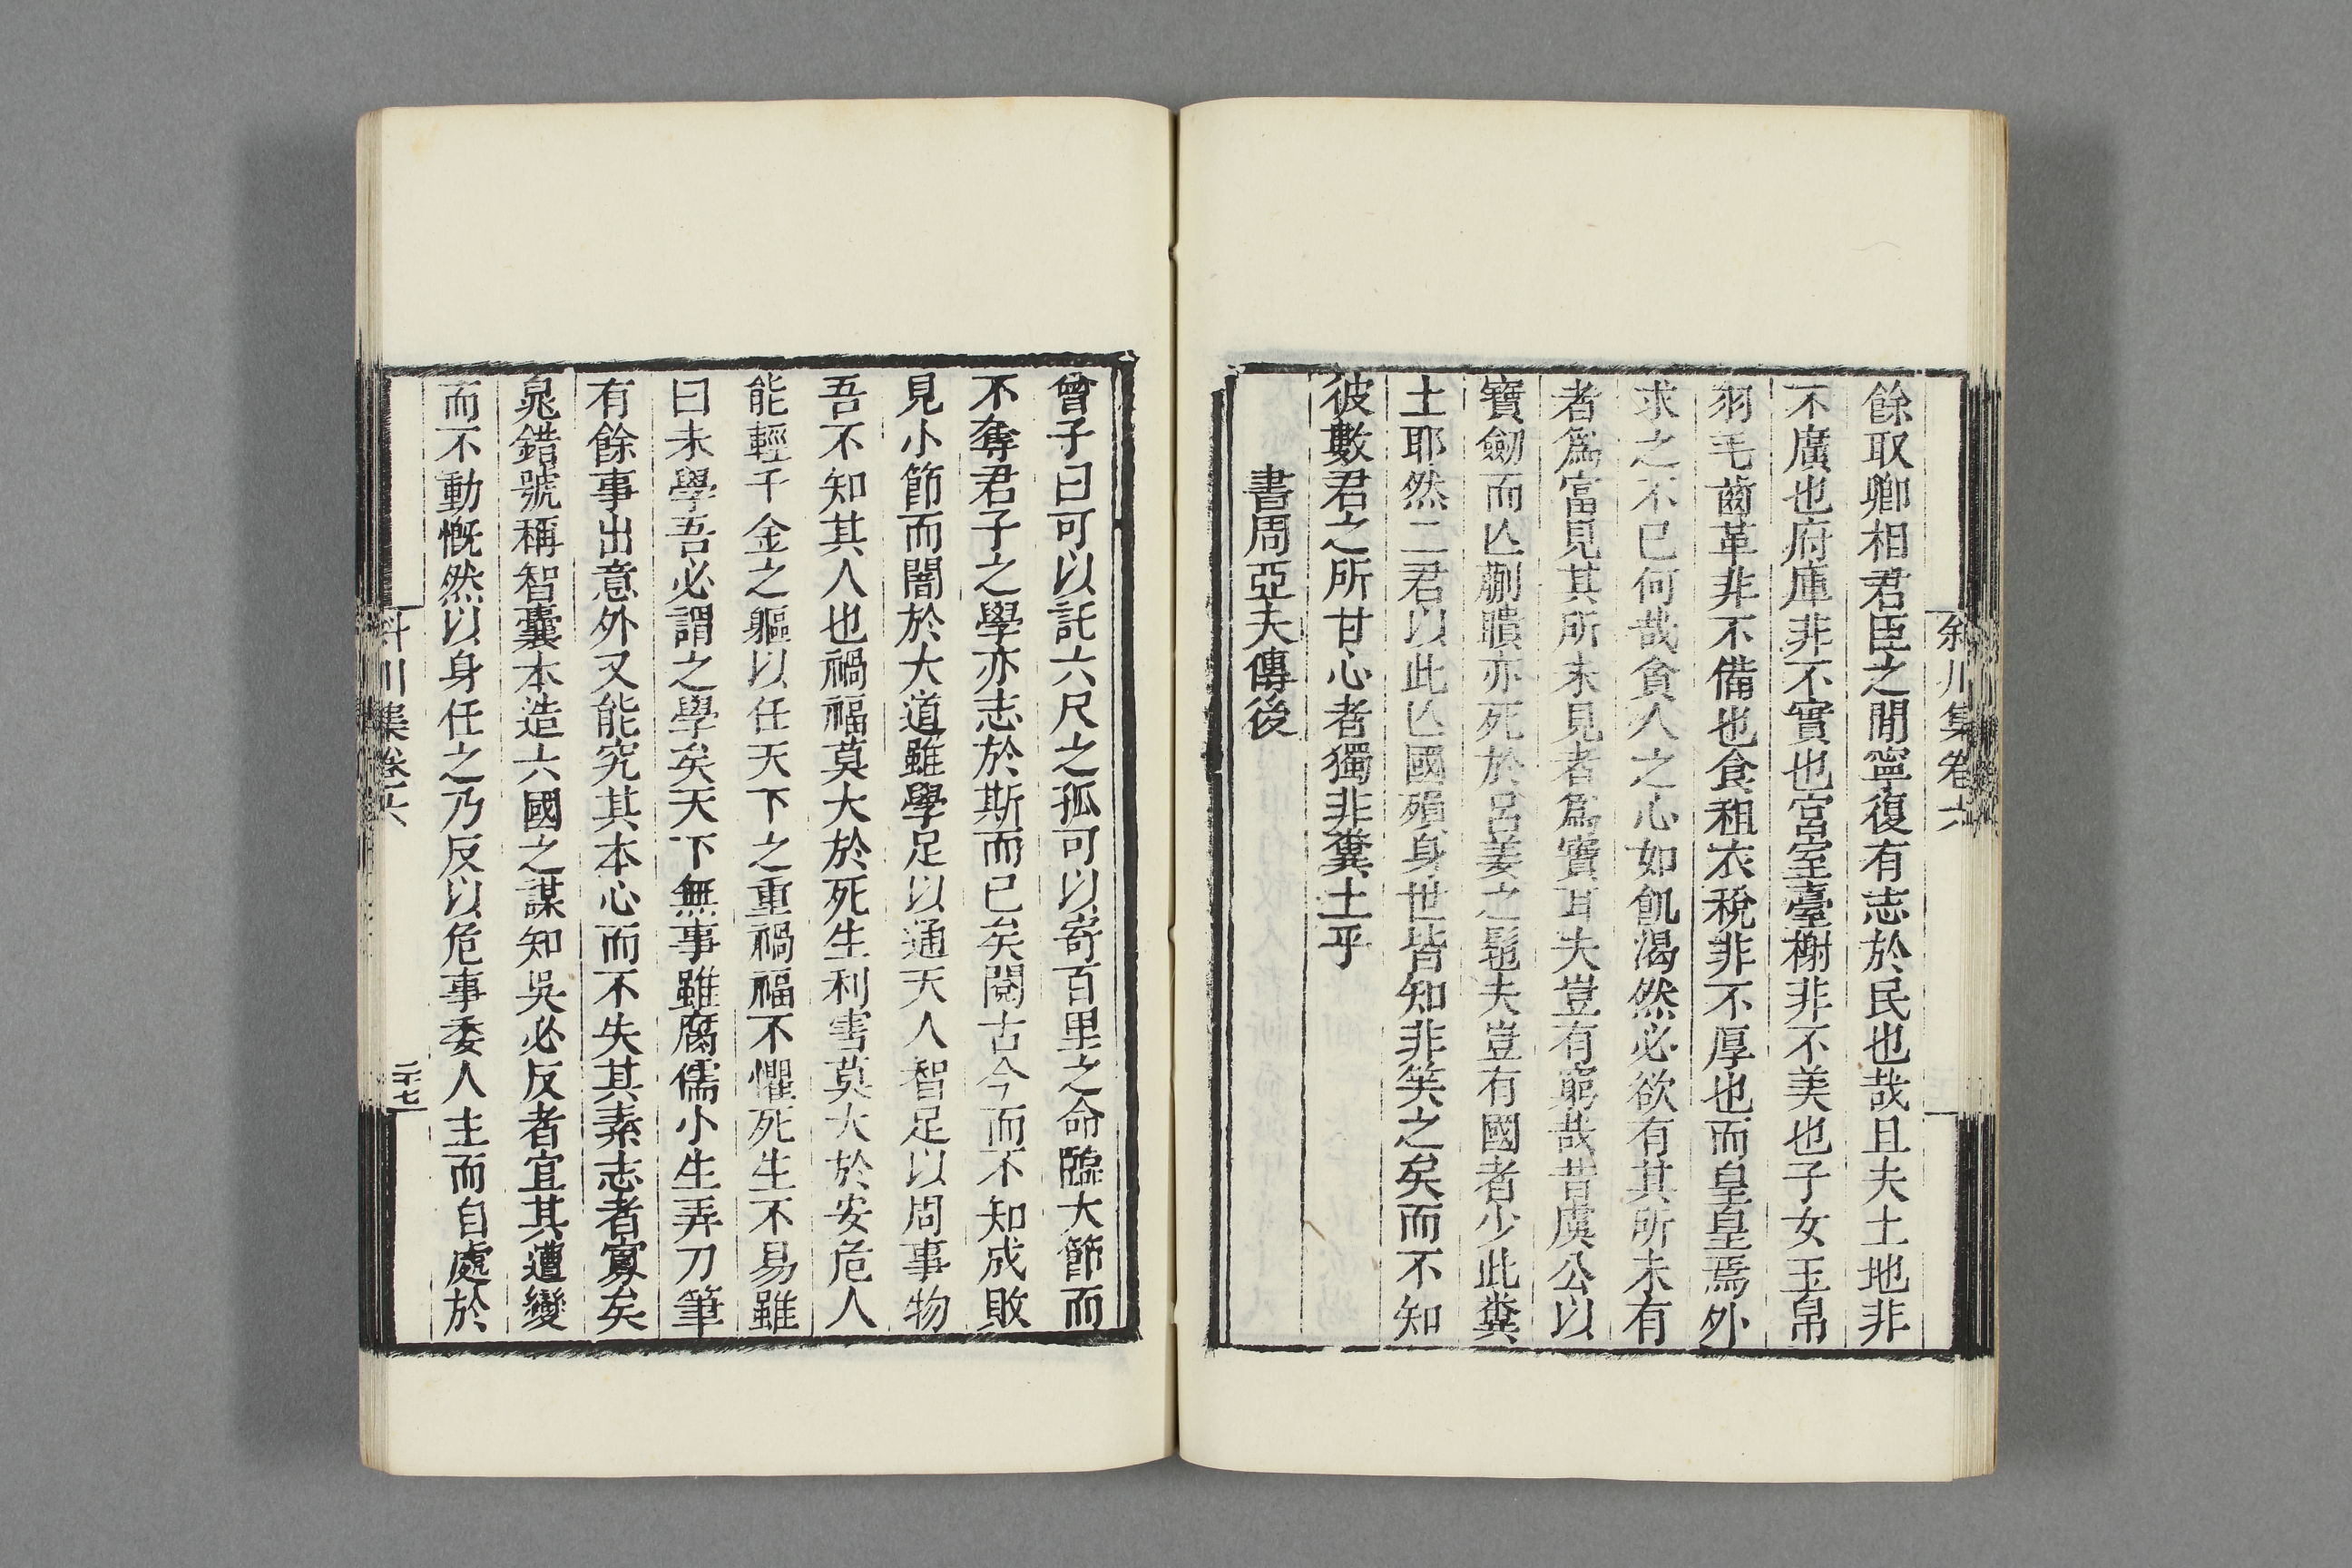 斜川集卷六
餘取卿相君臣之閒寧復有志於民也哉且夫土地非
不廣也府庫非不實也宮室臺榭非不美也子女玉帛
羽毛齒革非不備也食租衣稅非不厚也而皇皇焉外
求之不已何哉貪人之心如飢渴然必欲有其所未有
者爲富見其所未見者爲寶耳夫豈有窮哉昔虞公以
寶劒而亾蒯聵亦死於呂姜之髢夫豈有國者少此糞
土耶然二君以此亾國殞身世皆知非笑之矣而不知
彼數君之所甘心者獨非糞土乎
書周亞夫傳後
曾子曰可以託六尺之孤可以寄百里之命臨大節而
不奪君子之學亦志於斯而已矣閱古今而不知成敗
見小節而闇於大道雖學足以通天人智足以周事物
吾不知其人也禍福莫大於死生利害莫大於安危人
能輕千金之軀以任天下之重禍福不懼死生不易雖
曰未學吾必謂之學矣天下無事雖腐儒小生弄刀筆
有餘事出意外又能究其本心而不失其素志者寡矣
鼂錯號稱智囊本造六國之謀知吳必反者宜其遭變
而不動慨然以身任之乃反以危事委人主而自處於
斜川集卷六
二十七